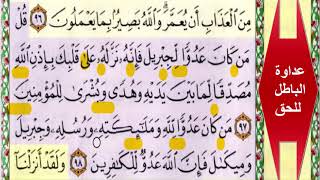 مِنَ ٱلۡعَذَابِ أَن يُعَمَّرَۗ وَٱللَّهُ بَصِيرُۢ بِمَا يَعۡمَلُونَ ٩٦ قُلۡ
مَن كَانَ عَدُوّٗا لِّجِبۡرِيلَ فَإِنَّهُۥ نَزَّلَهُۥ عَلَىٰ قَلۡبِكَ بِإِذۡنِ ٱللَّهِ
مُصَدِّقٗا لِّمَا بَيۡنَ يَدَيۡهِ وَهُدٗى وَبُشۡرَىٰ لِلۡمُؤۡمِنِينَ
٩٧ مَن كَانَ عَدُوّٗا لِّلَّهِ وَمَلَٰٓئِكَتِهِۦ وَرُسُلِهِۦ وَجِبۡرِيلَ
وَمِيكَىٰلَ فَإِنَّ ٱللَّهَ عَدُوّٞ لِّلۡكَٰفِرِينَ ٩٨ وَلَقَدۡ أَنزَلۡنَآ
عداوة
الباطل
للحق